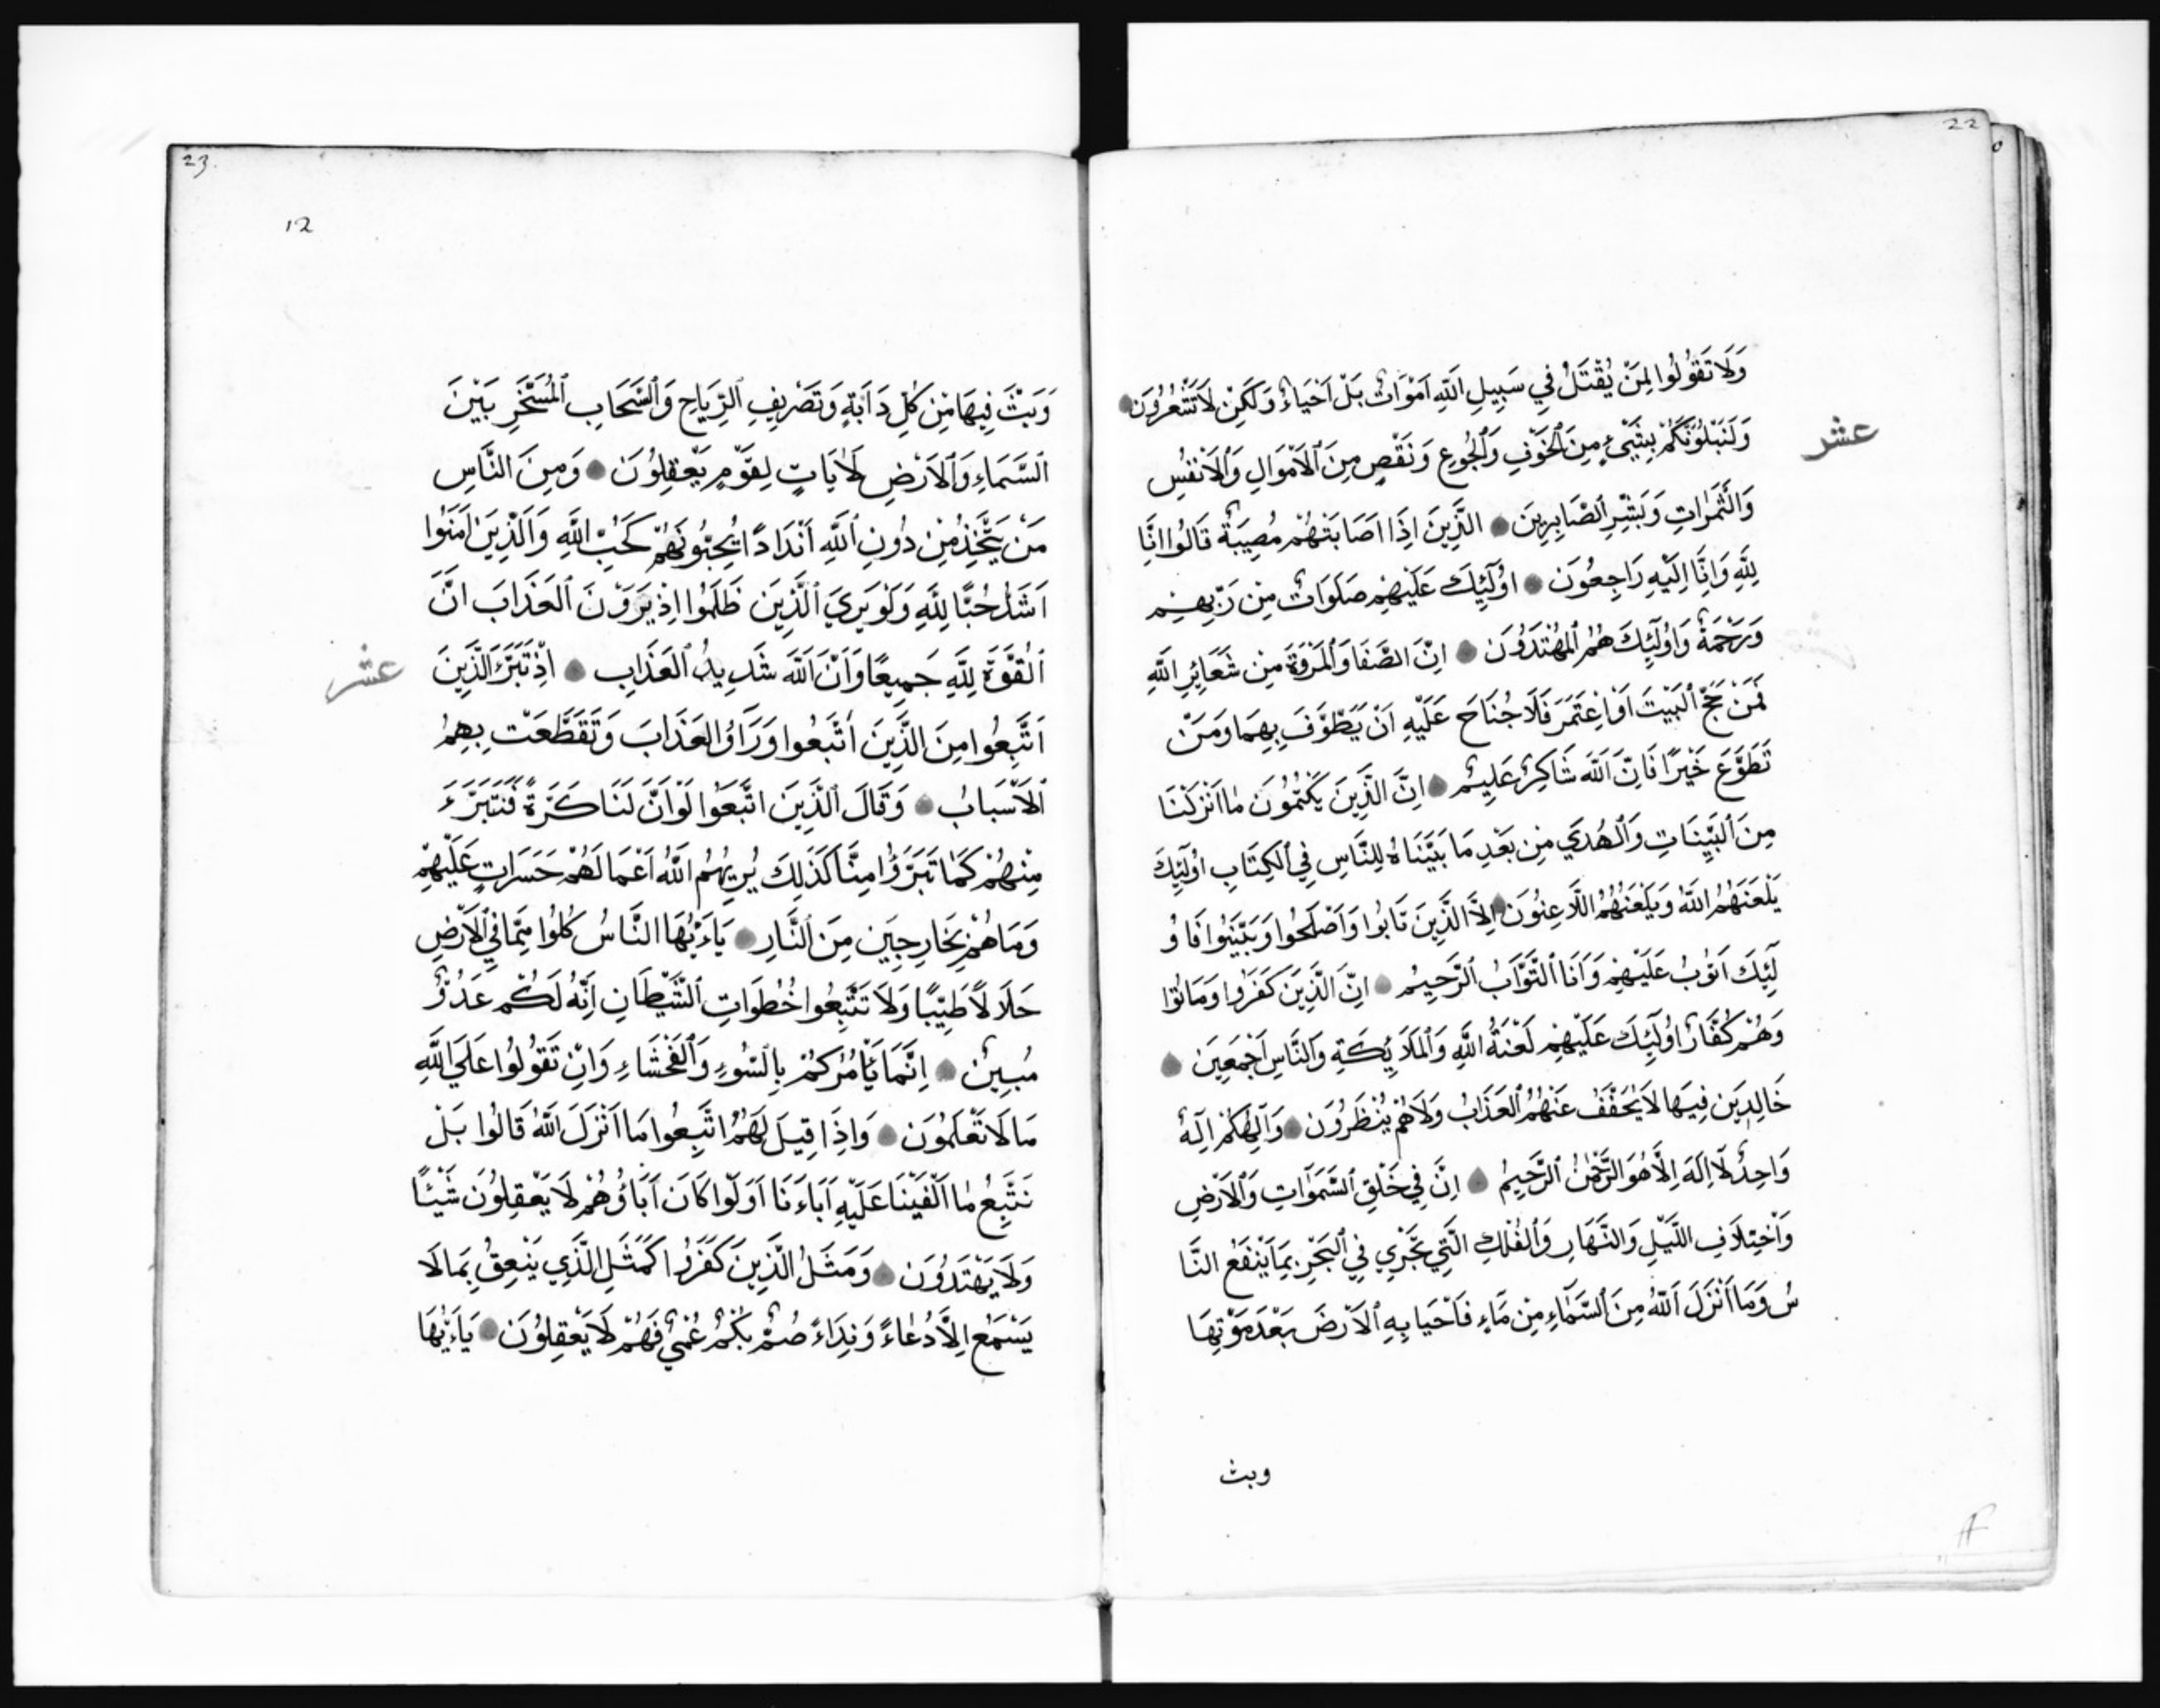 22
وَلَا تَقُولُوا لِمَنْ يُقْتَلُ فِي سَبِيلِ اللَّهِ اَمْوَاتٌ بَلْ اَحْيَاءٌ وَلَكِنْ لَا تَشْعُرُونَ
عشر
وَلَنَبْلُوَنَّكُمْ بِشَيْءٍ مِنَ الْخَوْفِ وَالْجُوعِ وَنَقْصٍ مِنَ الْاَمْوَالِ وَالْاَنْفُسِ
وَالثَّمَرَاتِ وَبَشِّرِ الصَّابِرِينَ الَّذِينَ اِذَا اَصَابَتْهُمْ مُصِيبَةٌ قَالُوا اِنَّا
لِلَّهِ وَاِنَّا اِلَيْهِ رَاجِعُونَ اُولَئِكَ عَلَيْهِمْ صَلَوَاتٌ مِنْ رَبِّهِمْ
وَرَحْمَةٌ وَاُولَئِكَ هُمُ الْمُهْتَدُونَ اِنَّ الصَّفَا وَالْمَرْوَةَ مِنْ شَعَائِرِ اللَّهِ
فَمَنْ حَجَّ الْبَيْتَ اَوِ اعْتَمَرَ فَلَا جُنَاحَ عَلَيْهِ اَنْ يَطَّوَّفَ بِهِمَا وَمَنْ
تَطَوَّعَ خَيْرًا فَاِنَّ اللَّهَ شَاكِرٌ عَلِيمٌ اِنَّ الَّذِينَ يَكْتُمُونَ مَا اَنْزَلْنَا
مِنَ الْبَيِّنَاتِ وَالْهُدَي مِنْ بَعْدِ مَا بَيَّنَّاهُ لِلنَّاسِ فِي الْكِتَابِ اُولَئِكَ
يَلْعَنُهُمُ اللَّهُ وَيَلْعَنُهُمُ اللَّاعِنُونَ اِلَّا الَّذِينَ تَابُوا وَاَصْلَحُوا وَبَيَّنُوا فَاُو
لَئِكَ اَتُوبُ عَلَيْهِمْ وَاَنَا التَّوَّابُ الرَّحِيمُ اِنَّ الَّذِينَ كَفَرُوا وَمَاتُوا
وَهُمْ كُفَّارٌ اُولَئِكَ عَلَيْهِمْ لَعْنَةُ اللَّهِ وَالْمَلَائِكَةِ وَالنَّاسِ اَجْمَعِينَ
خَالِدِينَ فِيهَا لَا يُخَفَّفُ عَنْهُمُ الْعَذَابُ وَلَا هُمْ يُنْظَرُونَ وَاِلَهُكُمْ اِلَهٌ
وَاحِدٌ لَا اِلَهَ اِلَّا هُوَ الرَّحْمَنُ الرَّحِيمُ اِنَّ فِي خَلْقِ السَّمَوَاتِ وَالْاَرْضِ
وَاخْتِلَافِ اللَّيْلِ وَالنَّهَارِ وَالْفُلْكِ الَّتِي تَجْرِي فِي الْبَحْرِ بِمَا يَنْفَعُ النَّا
سُ وَمَا اَنْزَلَ اللَّهُ مِنَ السَّمَاءِ مِنْ مَاءٍ فَاَحْيَا بِهِ الْاَرْضَ بَعْدَ مَوْتِهَا
وبث
23.
12
وَبَثَّ فِيهَا مِنْ كُلِّ دَابَّةٍ وَتَصْرِيفِ الرِّيَاحِ وَالسَّحَابِ الْمُسَخَّرِ بَيْنَ
السَّمَاءِ وَالْاَرْضِ لَاٰيَاتٍ لِقَوْمٍ يَعْقِلُونَ وَمِنَ النَّاسِ
مَنْ يَتَّخِذُ مِنْ دُونِ اللَّهِ اَنْدَادًا يُحِبُّونَهُمْ كَحُبِّ اللَّهِ وَالَّذِينَ اٰمَنُوا
اَشَدُّ حُبًّا لِلَّهِ وَلَوْ يَرَي الَّذِينَ ظَلَمُوا اِذْ يَرَوْنَ الْعَذَابَ اَنَّ
الْقُوَّةَ لِلَّهِ جَمِيعًا وَاَنَّ اللَّهَ شَدِيدُ الْعَذَابِ اِذْ تَبَرَّءَ الَّذِينَ
عشر
اتُّبِعُوا مِنَ الَّذِينَ اتَّبَعُوا وَرَاَوُا الْعَذَابَ وَتَقَطَّعَتْ بِهِمُ
الْاَسْبَابُ وَقَالَ الَّذِينَ اتَّبَعُوا لَوْ اَنَّ لَنَا كَرَّةً فَنَتَبَرَّءَ
مِنْهُمْ كَمَا تَبَرَّؤُا مِنَّا كَذَلِكَ يُرِيهُمُ اللَّهُ اَعْمَالَهُمْ حَسَرَاتٍ عَلَيْهِمْ
وَمَا هُمْ بِخَارِجِينَ مِنَ النَّارِ يَاءَيُّهَا النَّاسُ كُلُوا مِمَّا فِي الْاَرْضِ
حَلَالًا طَيِّبًا وَلَا تَتَّبِعُوا خُطُوَاتِ الشَّيْطَانِ اِنَّهُ لَكُمْ عَدُوٌّ
مُبِينٌ اِنَّمَا يَاْمُرُكُمْ بِالسُّوءِ وَالْفَحْشَاءِ وَاَنْ تَقُولُوا عَلَي اللَّهِ
مَا لَا تَعْلَمُونَ وَاِذَا قِيلَ لَهُمُ اتَّبِعُوا مَا اَنْزَلَ اللَّهُ قَالُوا بَلْ
نَتَّبِعُ مَا اَلْفَيْنَا عَلَيْهِ اَبَاءَنَا اَوَلَوْ كَانَ اَبَاؤُهُمْ لَا يَعْقِلُونَ شَيْئًا
وَلَا يَهْتَدُونَ وَمَثَلُ الَّذِينَ كَفَرُوا كَمَثَلِ الَّذِي يَنْعِقُ بِمَا لَا
يَسْمَعُ اِلَّا دُعَاءً وَنِدَاءً صُمٌّ بُكْمٌ عُمْيٌ فَهُمْ لَا يَعْقِلُونَ يَاءَيُّهَا